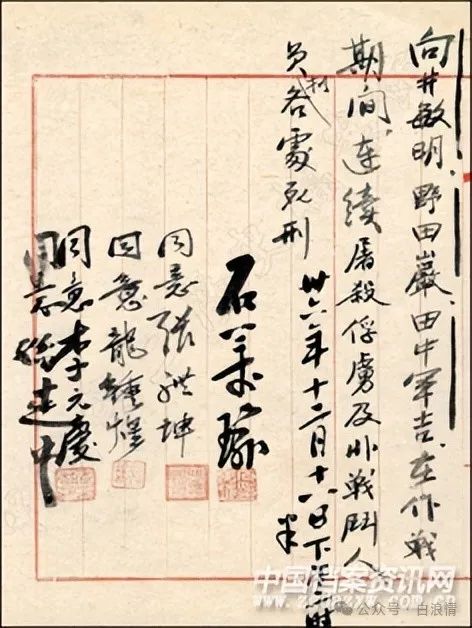 向井敏明、野田巖、田中軍吉、在作戰
期間、連續屠殺俘虜及非戰鬥人
員各處死刑
卅六年十二月十六日下午時半
石美瑜
同意張體坤
同意龍鍾煌
同意李元慶
同意孫建中
中国档案资讯网
www.zgdazxw.com.cn
公众号 · 白浪情